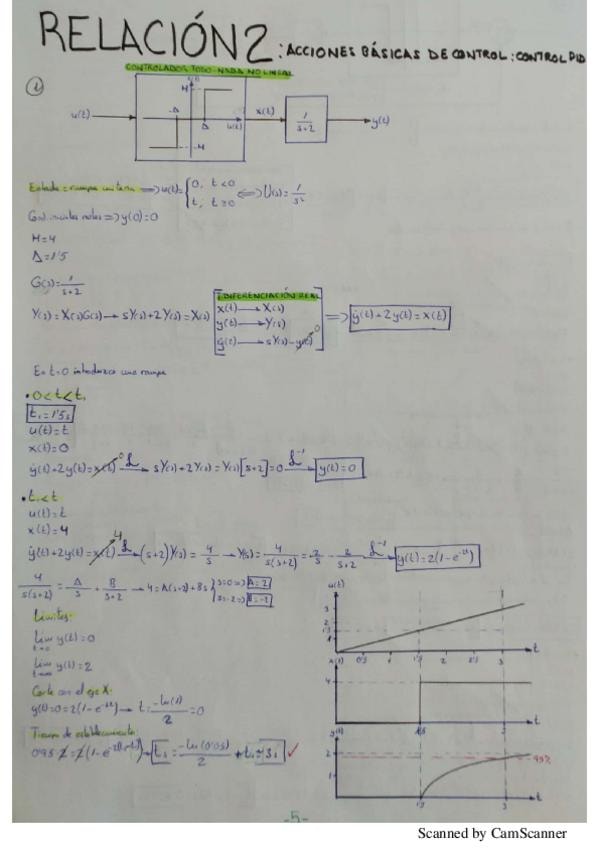 RELACIÓN 2 : ACCIONES BÁSICAS DE CONTROL : CONTROL PID
CONTROLADOR TODO-NADA NO LINEAL
1
u(t) M -Δ Δ u(t) -M x(t) 1/(s+2) y(t)
Entrada = rampa unitaria ⟹ u(t) = {0, t<0 ; t; t≥0 ⟺ U(s) = 1/s²
Cond. iniciales nulas ⟹ y(0)=0
M=4
Δ=1'5
G(s) = 1/(s+2)
DIFERENCIACIÓN REAL
x(t) → X(s)
Y(s) = X(s)G(s) → sY(s)+2Y(s) = X(s)
y(t) → Y(s)
ẏ(t) → sY(s) - y(0) 0
⟹ ẏ(t)+2y(t)=x(t)
En t=0 introduzco una rampa
• 0<t<t₁
t₁=1'5s
u(t)=t
x(t)=0
ẏ(t)+2y(t)=x(t) 0 ℒ → sY(s)+2Y(s)=Y(s)[s+2]=0 ℒ⁻¹ → y(t)=0
• t₁<t
u(t)=t
x(t)=4
ẏ(t)+2y(t)=x(t) 4 ℒ → (s+2)Y(s) = 4/s → Y(s) = 4/(s(s+2)) = 2/s - 2/(s+2) ℒ⁻¹ → y(t)=2(1-e^-2t)
4/(s(s+2)) = A/s + B/(s+2) → 4=A(s+2)+Bs { s=0 ⟹ A=2 ; s=-2 ⟹ B=-2
Límites:
lim y(t)=0
t→0
lim y(t)=2
t→∞
Corte con el eje X:
y(t)=0=2(1-e^-2t) → t = -ln(1)/2 = 0
Tiempo de establecimiento:
0'95·2=2(1-e^-2(ts-t₁)) → ts = -ln(0'05)/2 + t₁ ≈ 3s ✓
u(t)
3
2
1'5
1
0'5 1 1'5 2 3 t
x(t)
4
1'5 t
y(t)
2
95%
1
1'5 3 t
-5-
Scanned by CamScanner